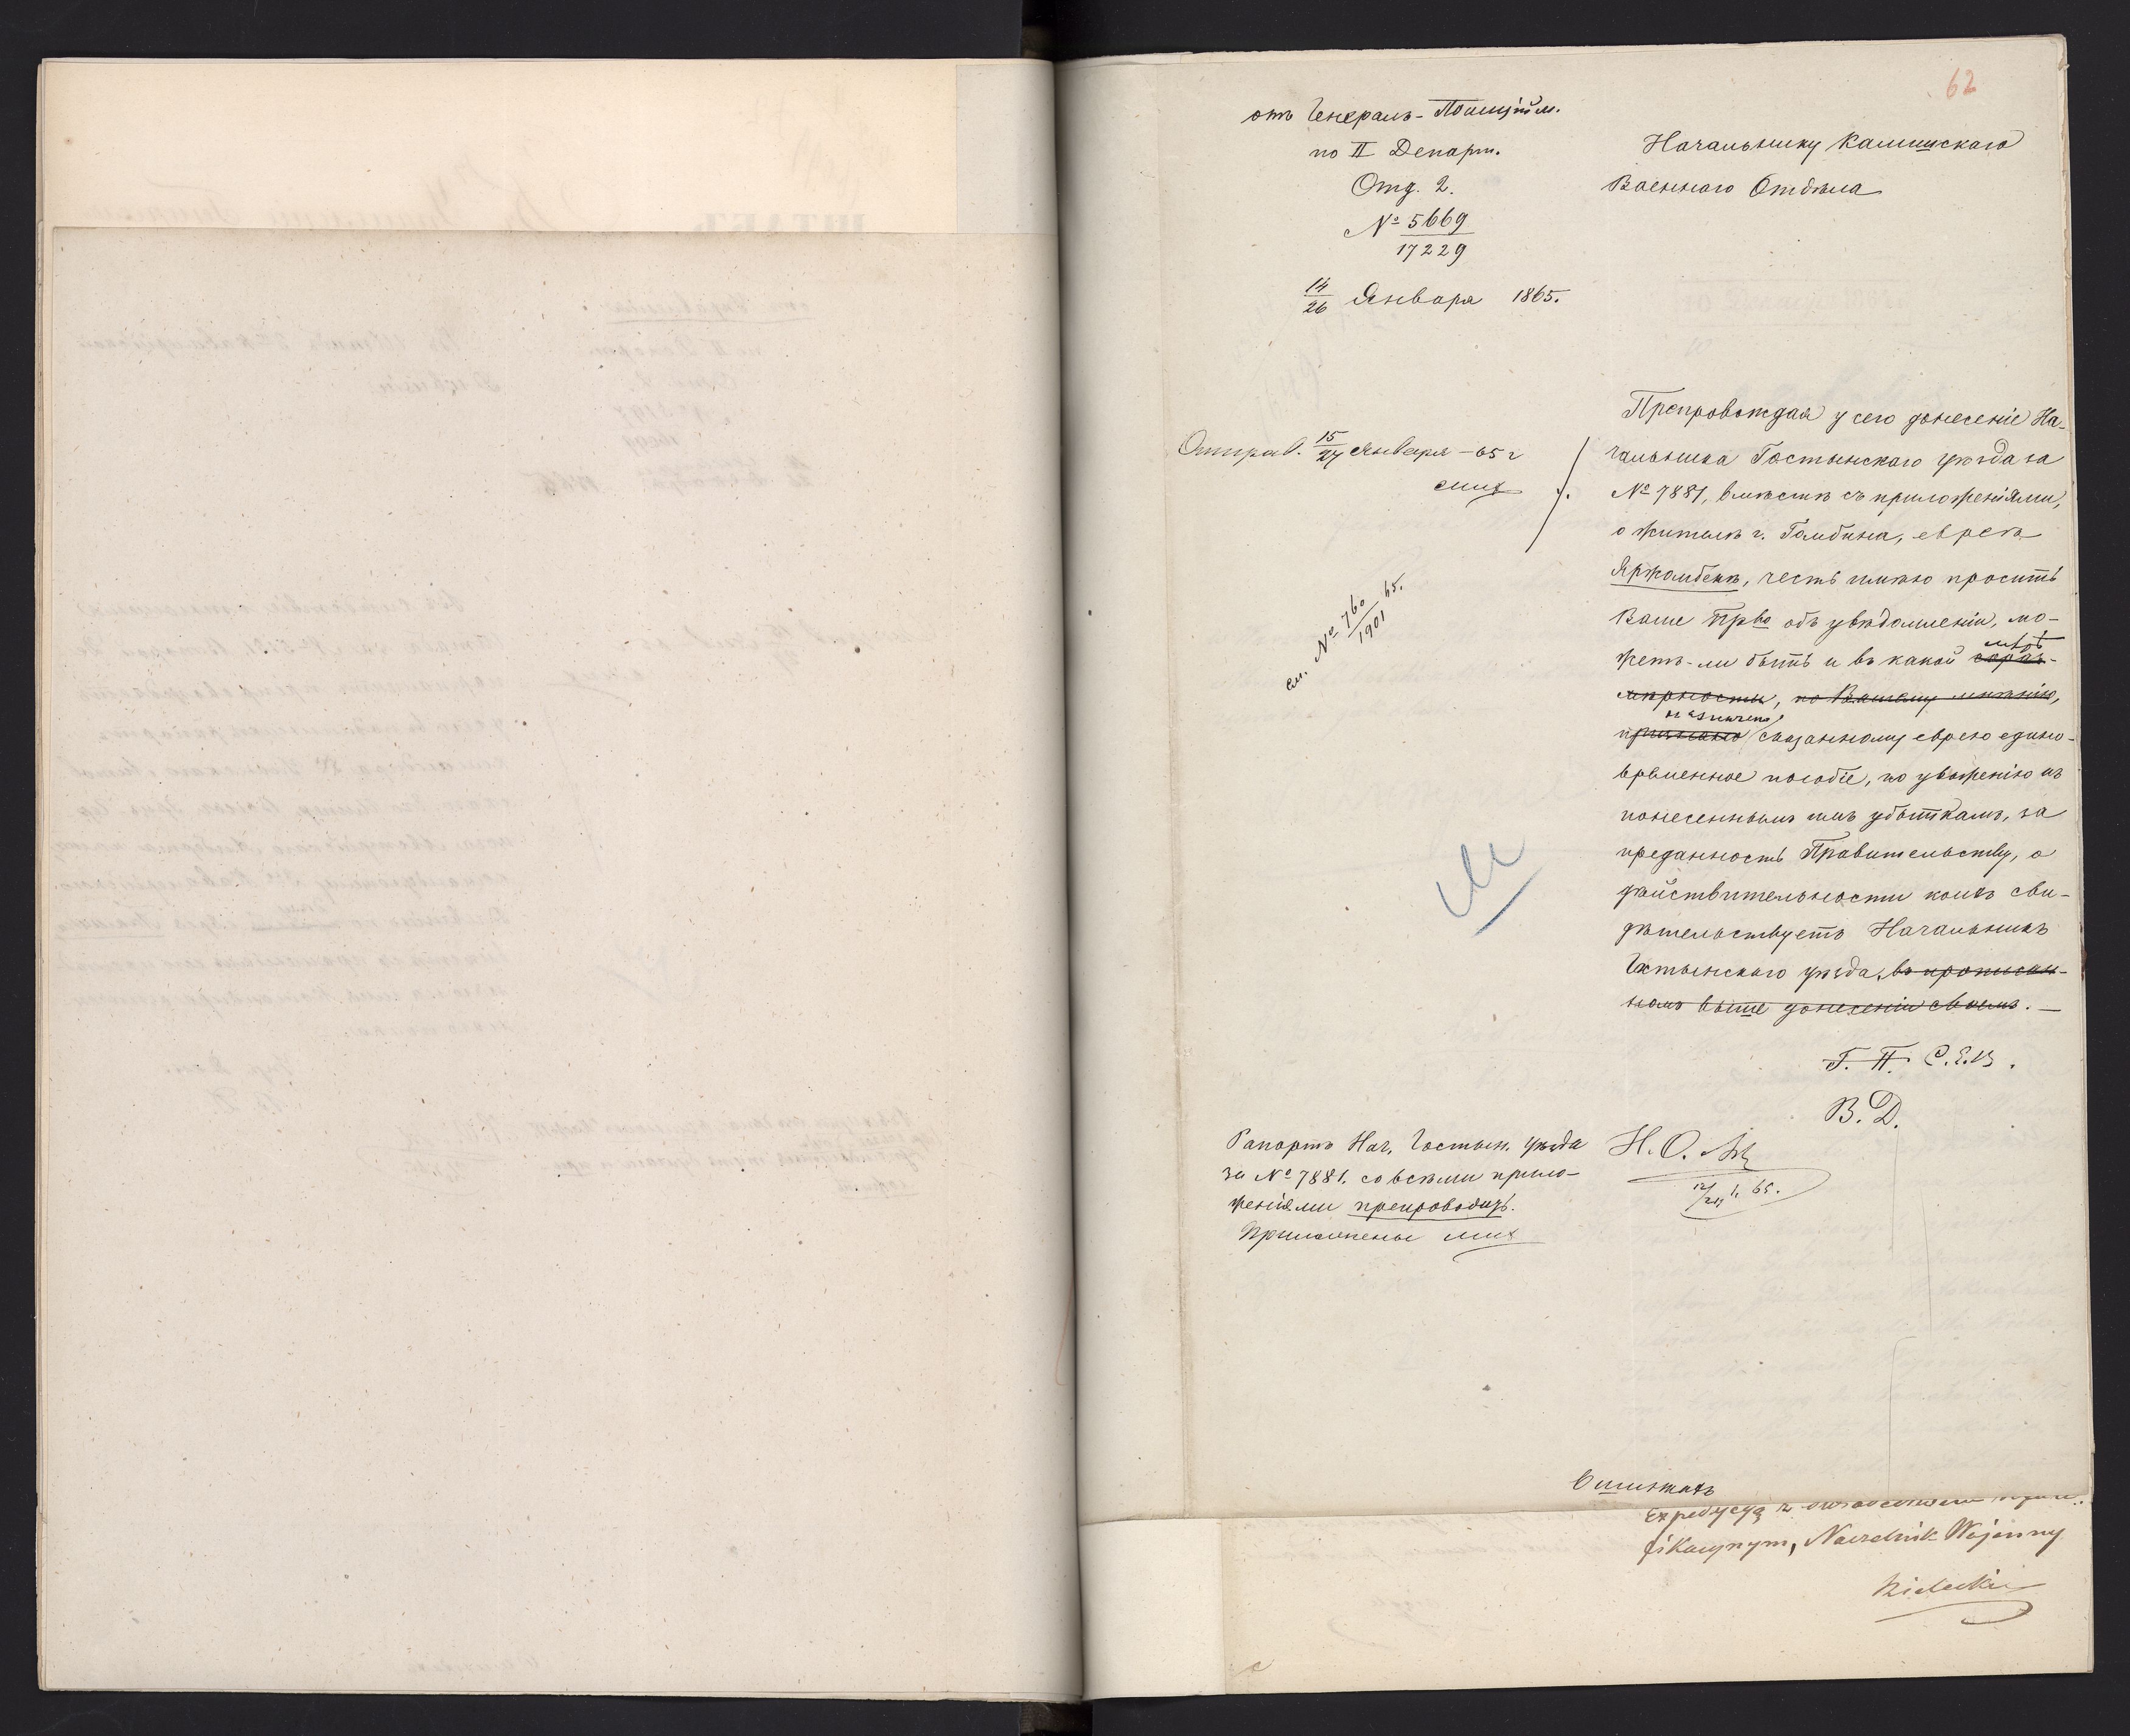 62
отъ Генералъ-Полицiйм.
по II Департ.
Отд. 2.
№ 5669
17229
14/26 Января 1865.
Начальнику Калишскаго
Военнаго Отдѣла
Отправ. 15/27 Января -65 г
см. № 760/1901 65.
Препровождая у сего донесенiе На-
чальника Гостынскаго уѣзда за
№ 7881, вмѣстѣ съ приложенiями,
о жителѣ г. Гомбина, евреѣ
Яржомбекѣ, честь имѣю просить
Ваше Прво объ увѣдомленiи, мо-
жетъ-ли быть и въ какой мѣрѣ сораз-
мѣрности, по Вашему мнѣнiю,
назначено сказанному еврею едино-
временное пособiе, по уваженiю къ
понесеннымъ имъ убыткамъ, за
преданность Правительству, о
дѣйствительности коихъ сви-
дѣтельствуетъ Начальникъ
Гостынскаго уѣзда, въ прописан-
номъ выше донесенiи своемъ.
Г. П. С. Е. В.
В. Д.
Н. О.
Рапортъ Нач. Гостын. уѣзда
за № 7881. со всѣми прило-
женiями препроводить.
Приложены
Expedycyą
Naczelnik Wojenny